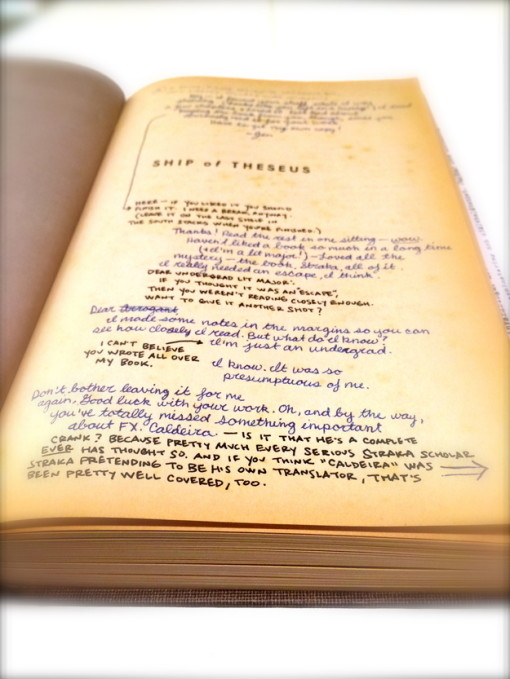 have to get my own copy!
- Jen
SHIP of THESEUS
HERE — IF YOU LIKED IT YOU SHOULD
FINISH IT. I NEED A BREAK, ANYWAY.
(LEAVE IT ON THE LAST SHELF IN
THE SOUTH STACKS WHEN YOU'RE FINISHED.)
Thanks! Read the rest in one sitting — wow.
Haven't liked a book so much in a long time
(+ I'm a lit major!) — Loved all the
mystery — the book, Straka, all of it.
I really needed an escape, I think.
DEAR UNDERGRAD LIT MAJOR:
IF YOU THOUGHT IT WAS AN "ESCAPE",
THEN YOU WEREN'T READING CLOSELY ENOUGH.
WANT TO GIVE IT ANOTHER SHOT?
Dear Arrogant
I made some notes in the margins so you can
see how closely I read. But what do I know?
I'm just an undergrad.
I CAN'T BELIEVE
YOU WROTE ALL OVER
MY BOOK.
I know. It was so
presumptuous of me.
Don't bother leaving it for me
again. Good luck with your work. Oh, and by the way,
you've totally missed something important
about FX. Caldeira. — IS IT THAT HE'S A COMPLETE
CRANK? BECAUSE PRETTY MUCH EVERY SERIOUS STRAKA SCHOLAR
EVER HAS THOUGHT SO. AND IF YOU THINK "CALDEIRA" WAS
STRAKA PRETENDING TO BE HIS OWN TRANSLATOR, THAT'S
BEEN PRETTY WELL COVERED, TOO.